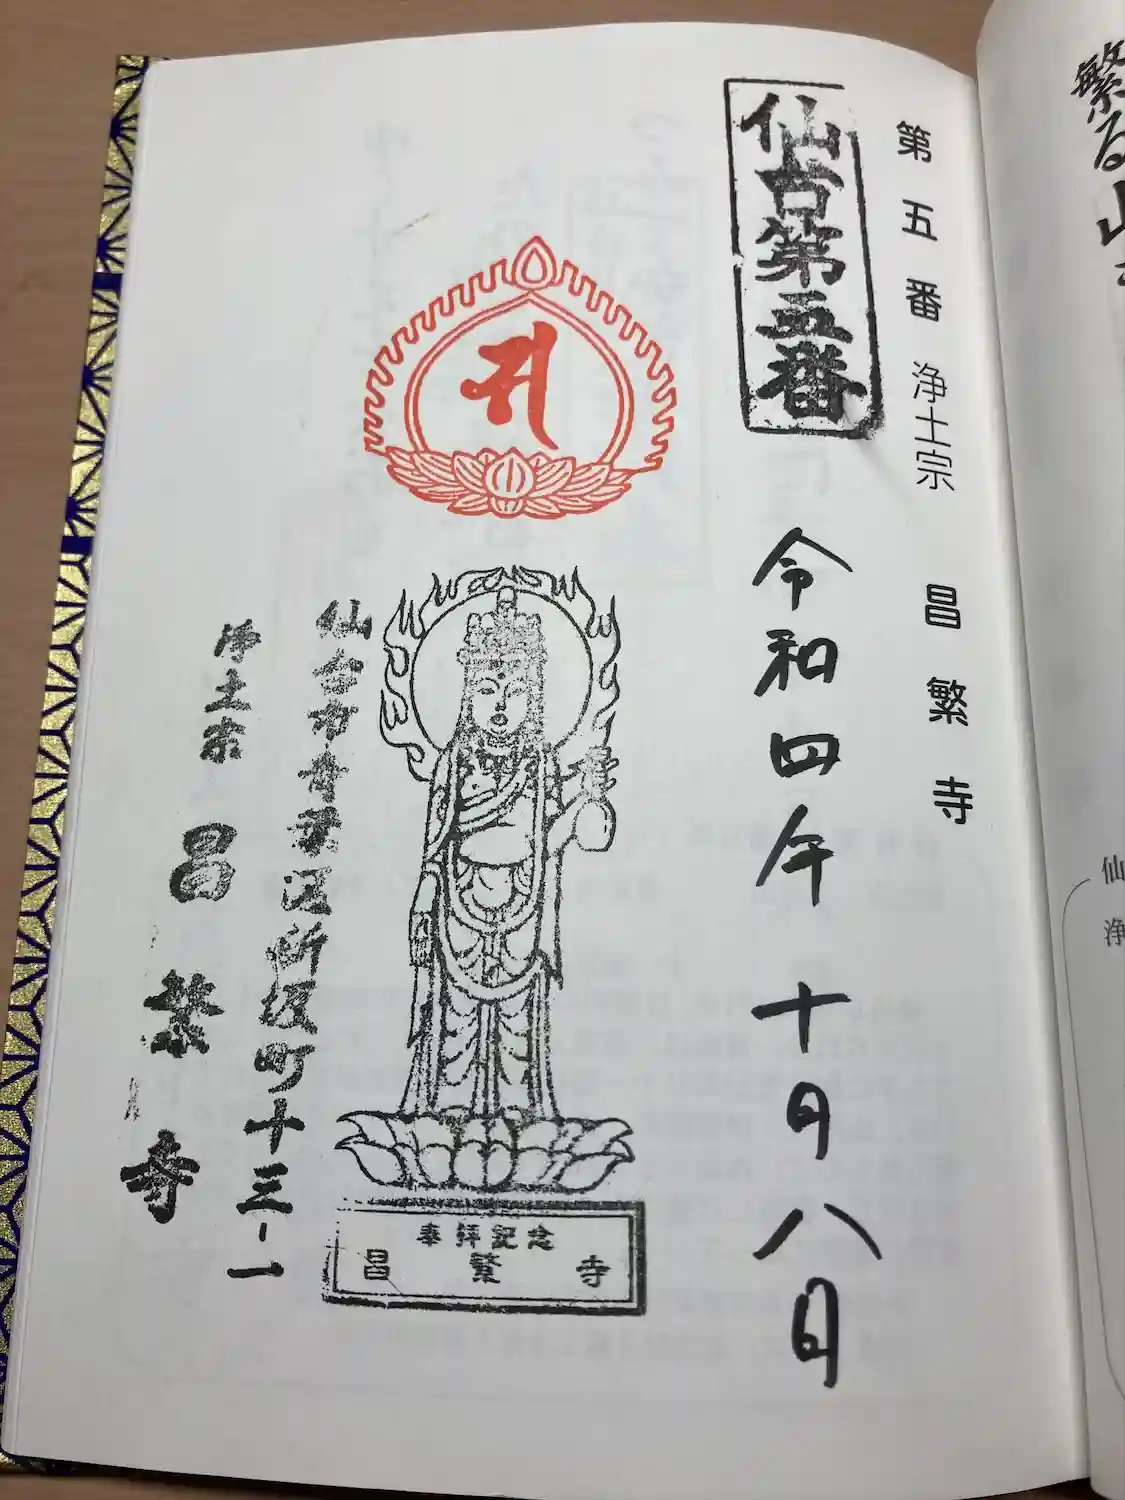 繁る山
仙
浄
第五番 浄土宗 昌繁寺
仙台第五番
令和四年 十月八日
奉拝記念
昌繁寺
仙台市青葉区新坂町十三-一
浄土宗 昌繁寺